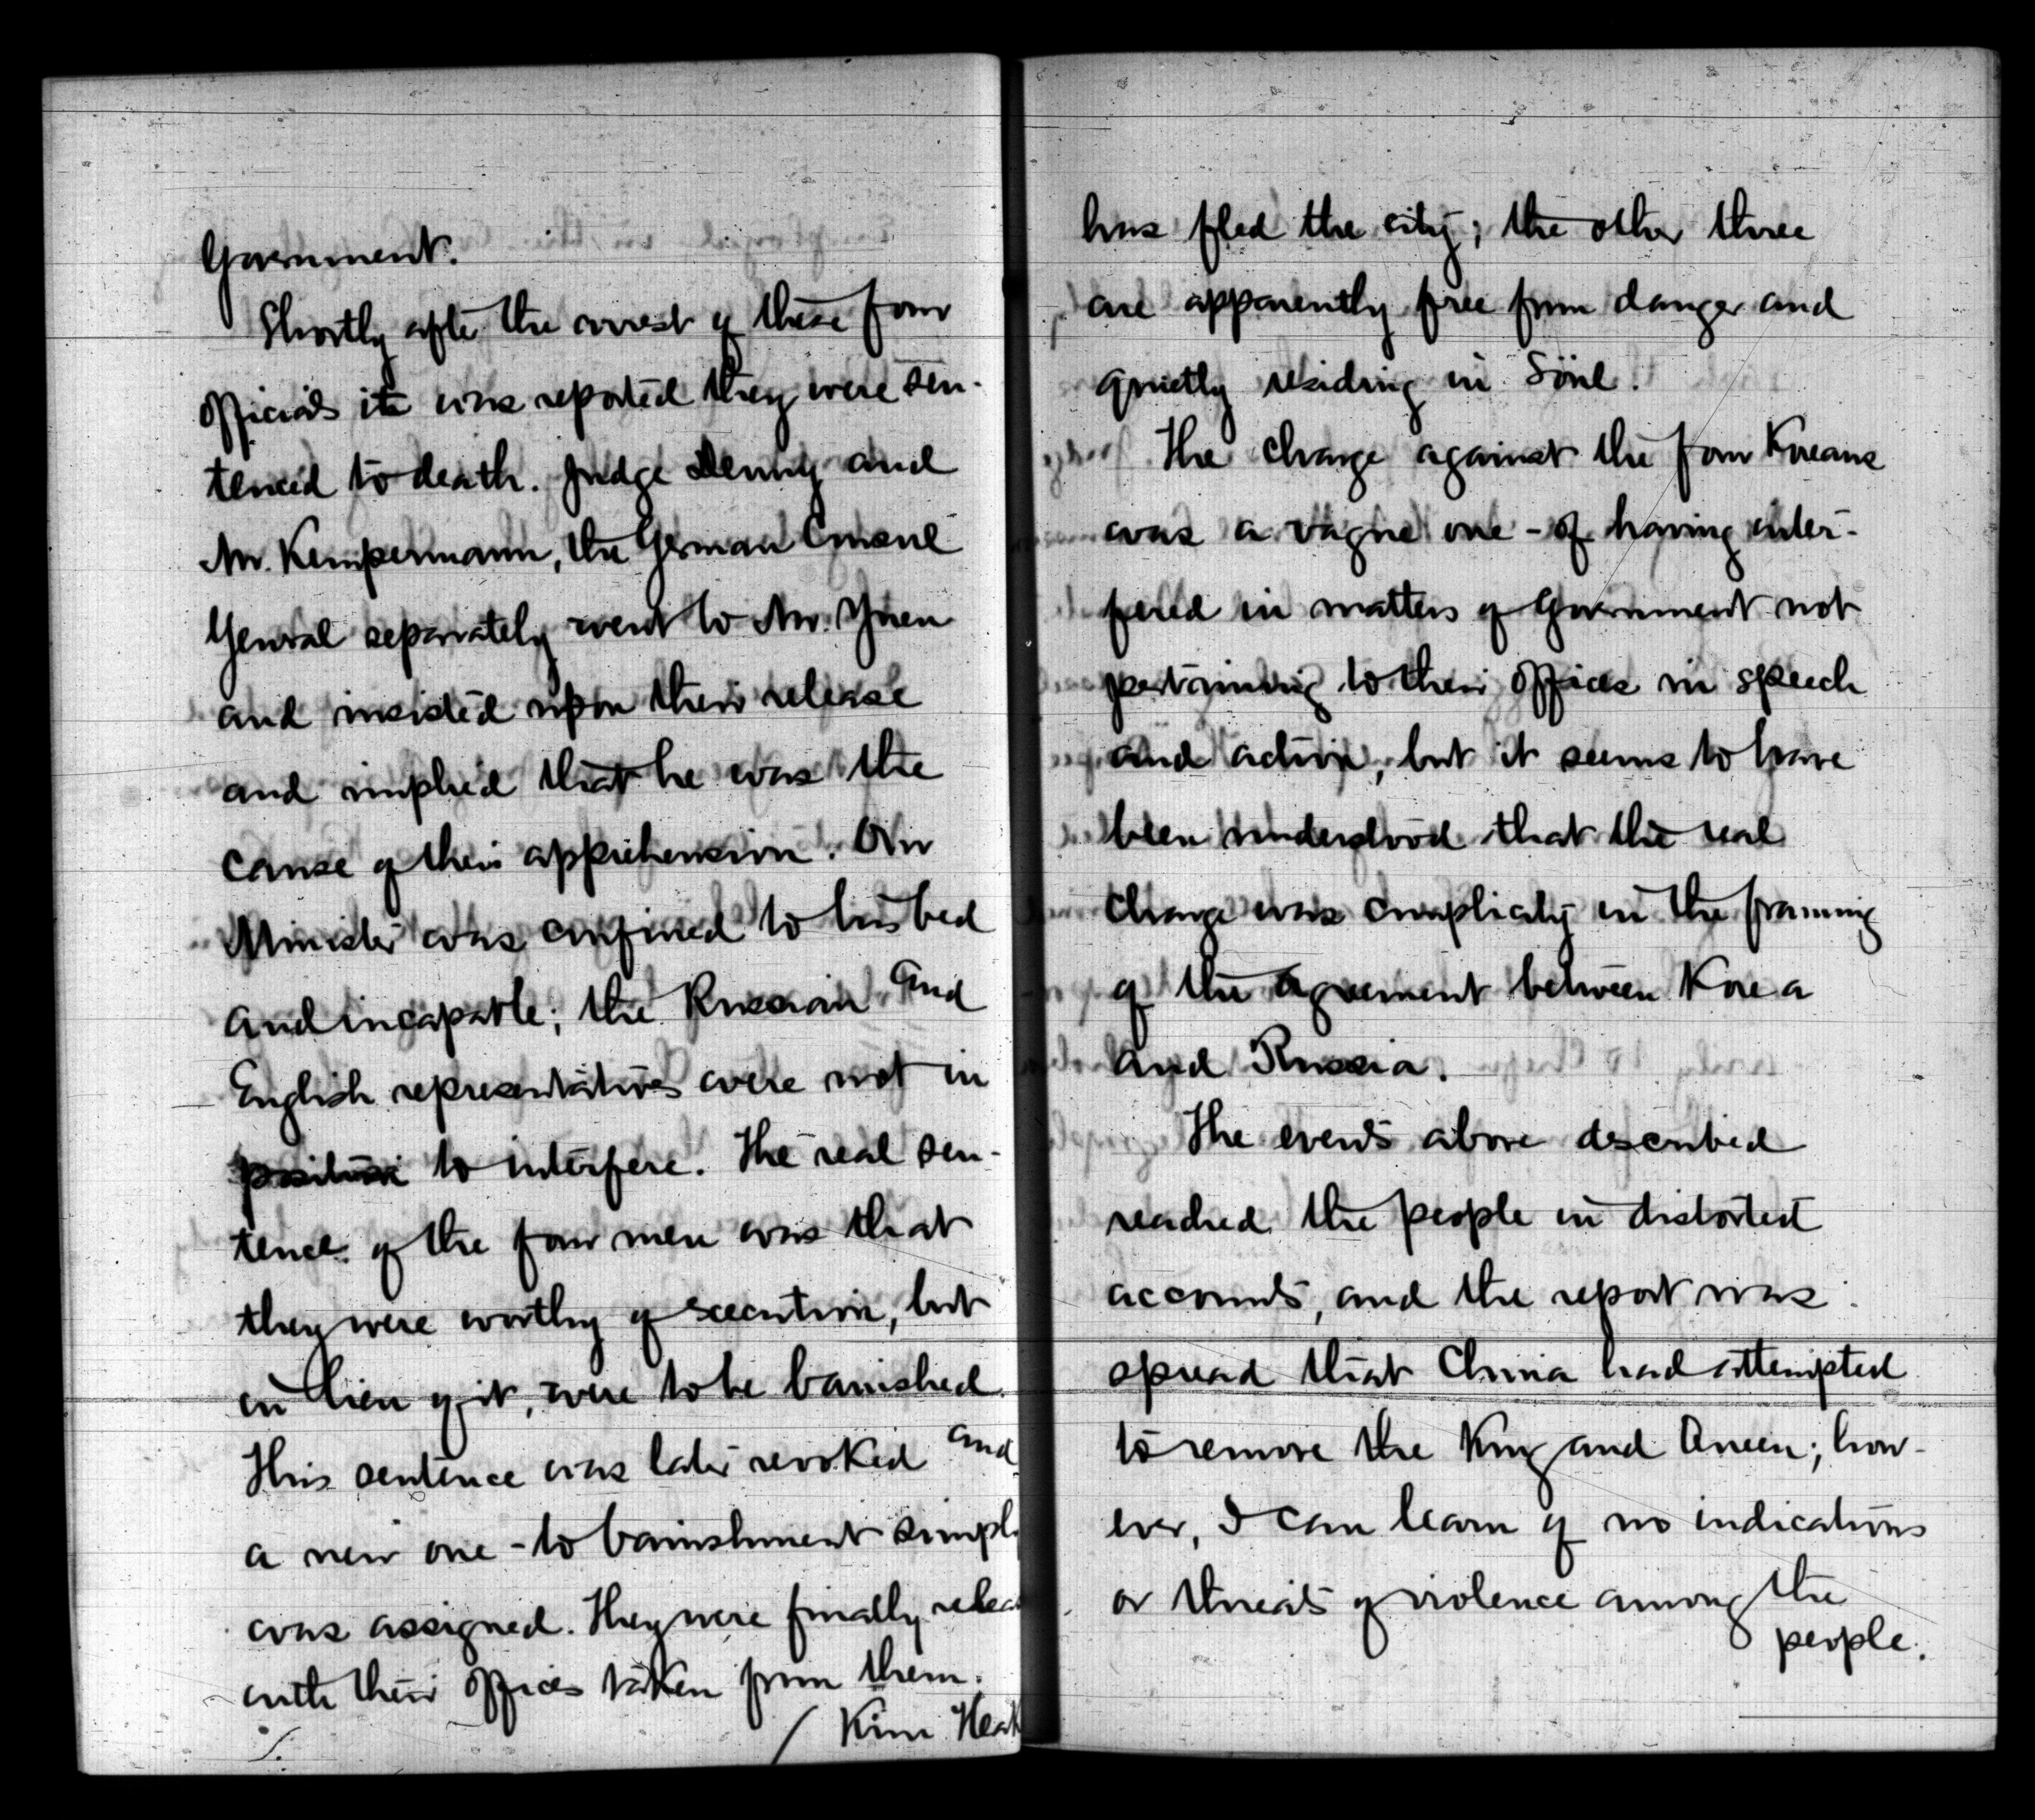 Government.
Shortly after the arrest of these four
officials it was reported they were sen-
tenced to death. Judge Denny and
Mr. Kempermann, the German Consul
General separately went to Mr. Yuen
and insisted upon their release
and implied that he was the
cause of their apprehension. Our
Minister was confined to his bed
and incapable; the Russian and
English representatives were not in
position to interfere. The real sen-
tence of the four men was that
they were worthy of execution, but
in lieu of it, were to be banished.
This sentence was later revoked and
a new one - to banishment simpl
was assigned. They were finally relea
with their offices taken from them.
Kim Heak
has fled the city; the other three
are apparently free from danger and
quietly residing in Söul.
The charge against the four Koreans
was a vague one - of having inter-
fered in matters of Government not
pertaining to their offices in speech
and action, but it seems to have
been understood that the real
charge was complicity in the framing
of the agreement between Korea
and Russia.
The events above described
reached the people in distorted
accounts, and the report was
spread that China had attempted
to remove the King and Queen; how-
ever, I can learn of no indications
or threats of violence among the
people.